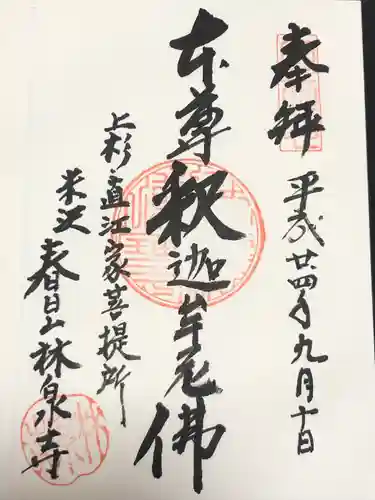 奉拝
平成廿四年九月十日
本尊釈迦牟尼佛
上杉・直江家菩提所
米沢 春日山林泉寺